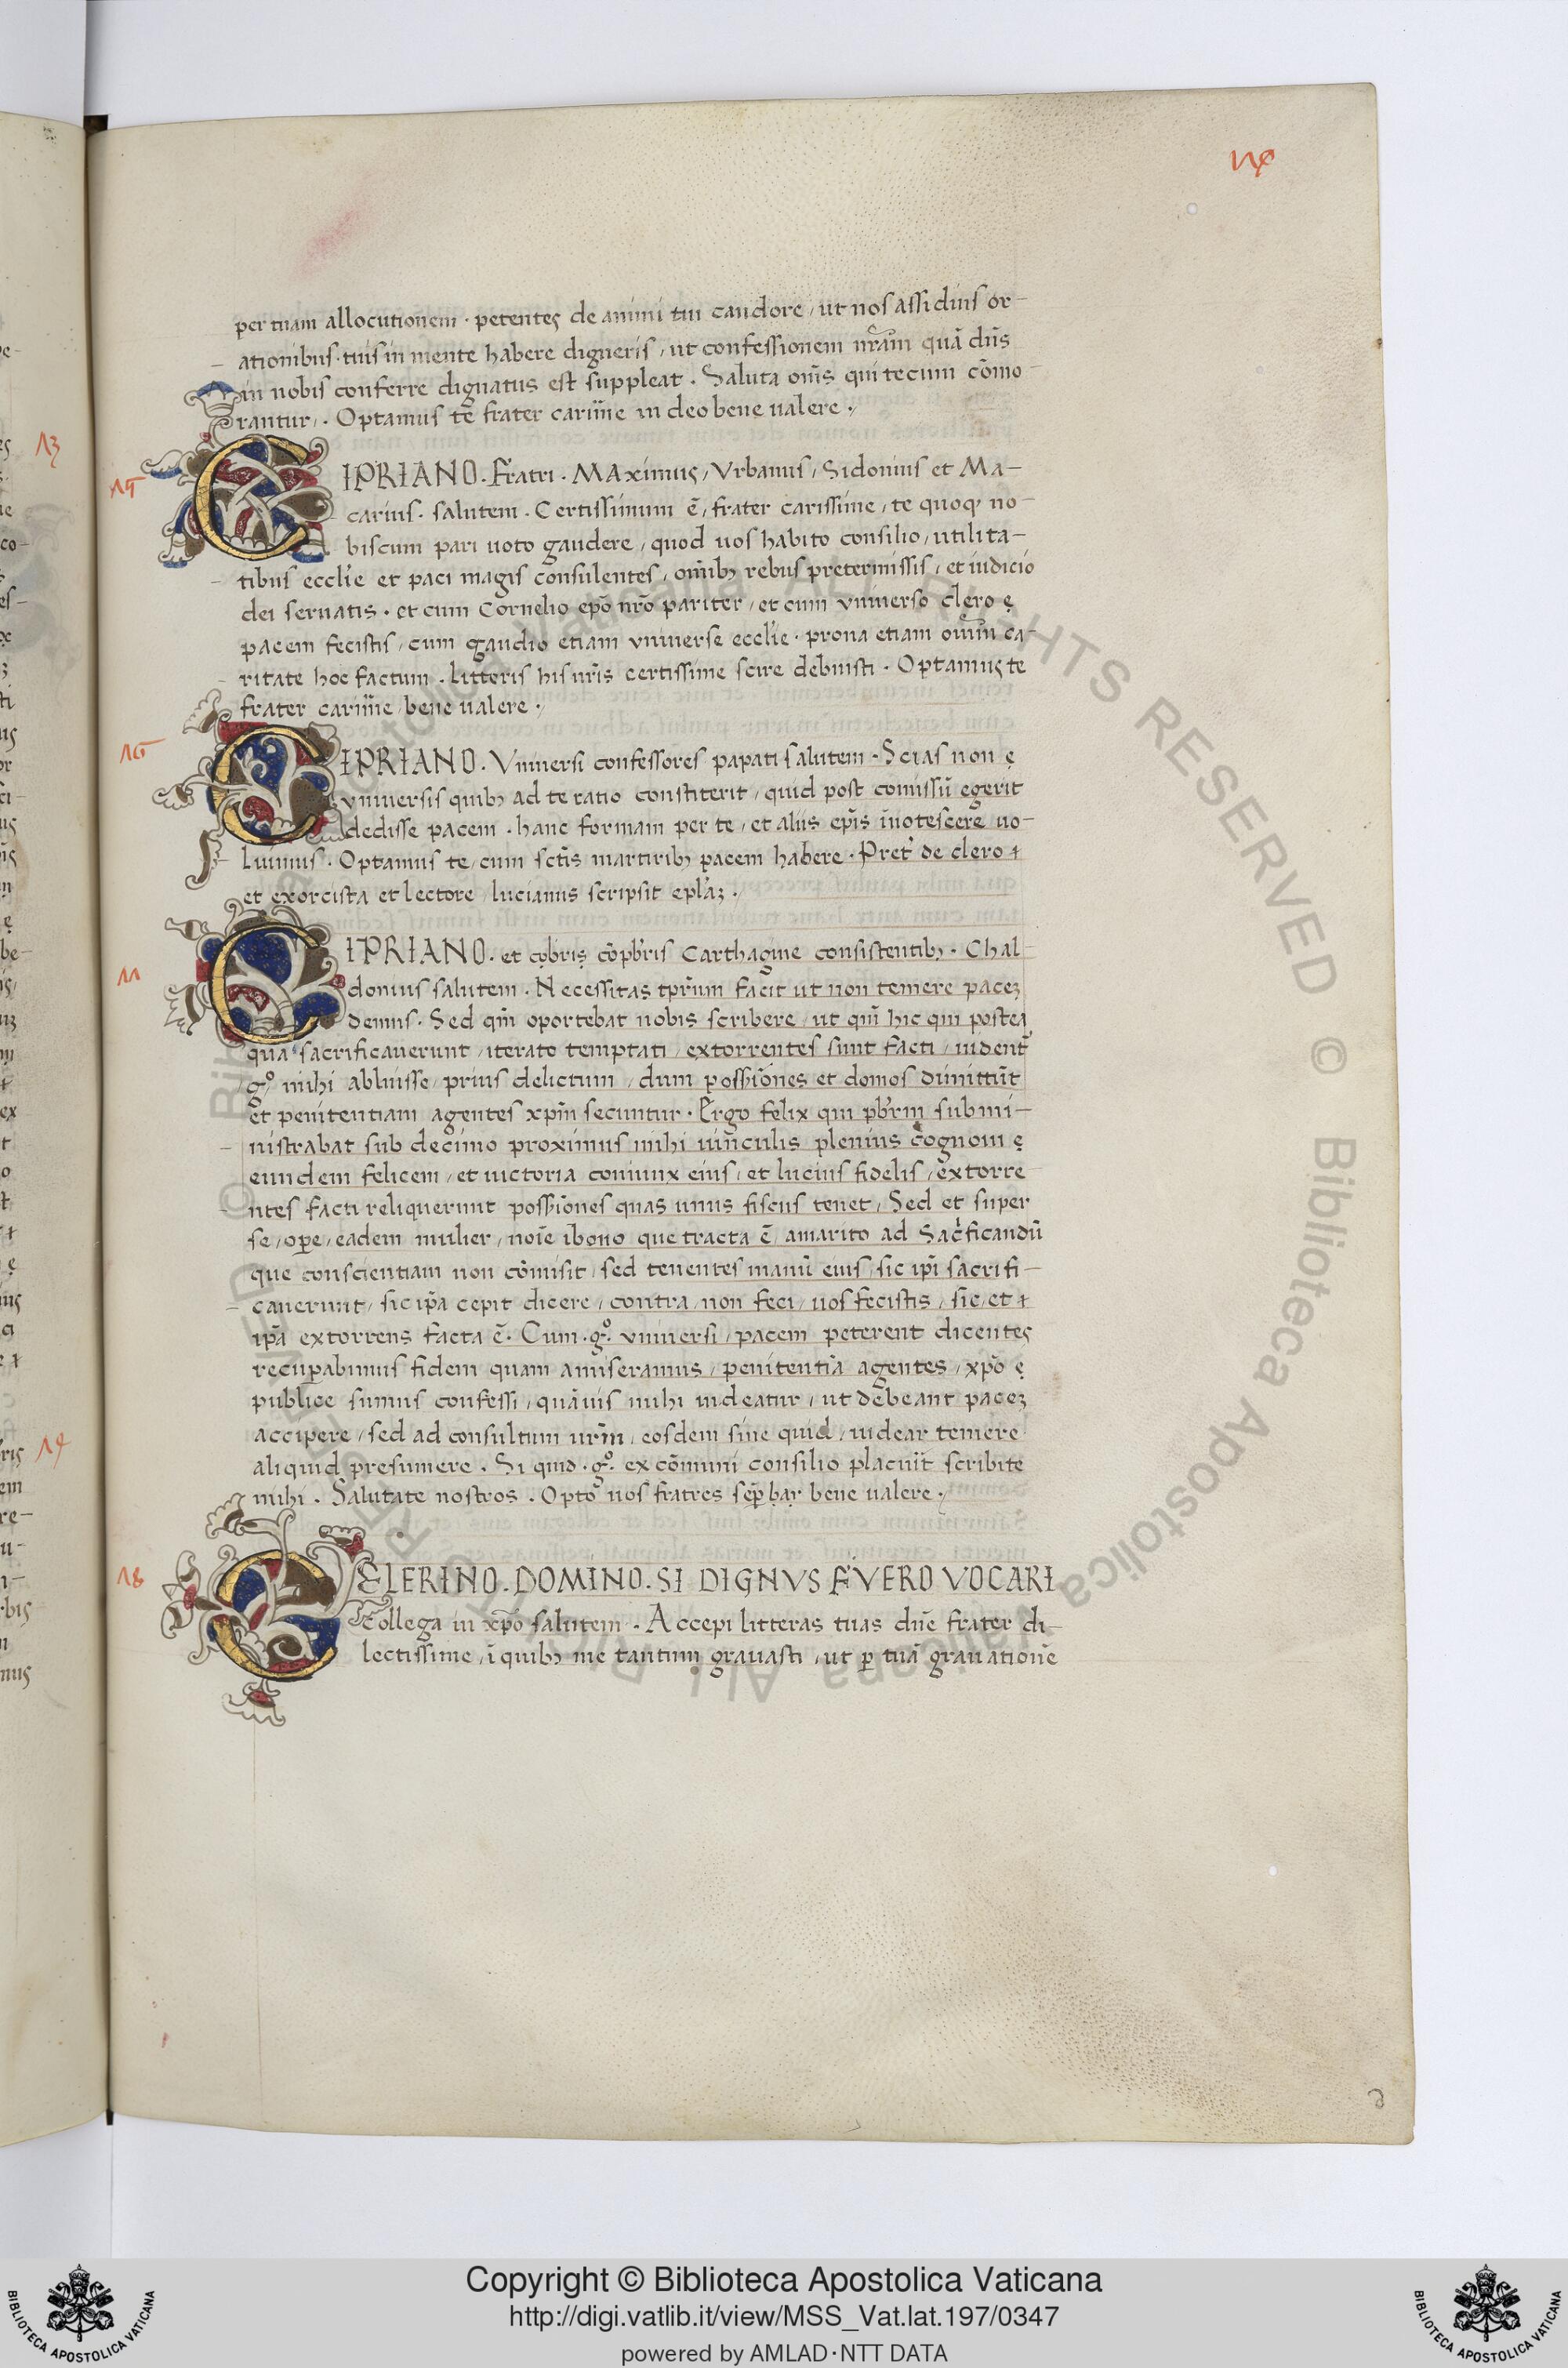 per tuam allocutionem · petentes de animi tui candore, ut nos assiduis or-
ationibus tuis in mente habere digneris, ut confessionem nr̄am quā dn̄s
in nobis conferre dignatus est suppleat · Saluta om̄s qui tecum cōmo
rantur, · Optamus te frater carim̄e in deo bene ualere ·
CIPRIANO · Fratri · MAximus, Vrbanus, Sidonius et Ma-
carius · salutem · Certissimum ē, frater carissime, te quoq; no-
biscum pari uoto gaudere, quod uos habito consilio, utilita-
tibus eccl'ie et paci magis consulentes, om̄ib; rebus pretermissis, et iudicio
dei seruatis · et cum Cornelio ep̄o nr̄o pariter, et cum vniuerso clero ę
pacem fecistis, cum gaudio etiam vniuerse eccl'ie · prona etiam om̄in ca-
ritate hoc factum · litteris his nr̄is certissime scire debuisti · Optamus te
frater carim̄e bene ualere ·
CIPRIANO · Vniuersi confessores papati salutem · Scias non ę
vniuersis quib; ad te ratio constiterit, quid post comissū egerit
dedisse pacem · hanc formam per te, et aliis ep̄is īnotescere uo-
luimus · Optamus te, cum sct̄is martirib; pacem habere · Pret' de clero
et exorcista et lectore lucianus scripsit epl'aʒ ·
CIPRIANO · et cōpbr̄is Carthagine consistentib; · Chal-
donius salutem · Necessitas tpr̄um facit ut non temere paceʒ
demus · Sed qm̄ oportebat nobis scribere, ut qm̄ hic qui postea
qua sacrificauerunt, iterato temptati, extorrentes sunt facti, uident'
gº mihi abluisse, prius delictum, dum possiōnes et domos dimittūt
et penitentiam agentes xpm̄ secuntur · Ergo felix qui pbr̄m submi-
nistrabat sub decimo proximus mihi uin̄culis plenius cognoui ę
eundem felicem, et uictoria coniunx eius, et lucius fidelis, extorre
ntes facti reliquerunt possiōnes quas unus fiscus tenet, Sed et super
se, ope, eadem mulier, noīe ibono que tracta ē, amarito ad Sac̄ficandū
que conscientiam non cōmisit, sed tenentes manū eius, sic ip̄i sacrifi-
cauerunt, sic ip̄a cepit dicere, contra, non feci, uos fecistis, sic, et
ip̄a extorrens facta ē · Cum · gº · vniuersi, pacem peterent dicentes
recuꝑabimus fidem quam amiseramus, penitentiā agentes, xp̄o ę
publice sumus confessi, quāuis mihi uideatur, ut debeant paceʒ
accipere, sed ad consultum ur̄m, eosdem sine quid, uidear temere
aliquid presumere · Si quid · gº · ex cōmuni consilio placuit scribite
mihi · Salutate nostros · Opto uos fratres bene ualere ·
CELERINO · DOMINO · SI DIGNVS FVERO VOCARI
Collega in xp̄o salutem · Accepi litteras tuas dn̄e frater di-
lectissime, ī quib; me tantum grauasti, ut ꝑ tuā grauationē
13
15
16
18
Copyright © Biblioteca Apostolica Vaticana
http://digi.vatlib.it/view/MSS_Vat.lat.197/0347
powered by AMLAD·NTT DATA
BIBLIOTECA APOSTOLICA VATICANA
BIBLIOTECA APOSTOLICA VATICANA
© Biblioteca Apostolica Vaticana ALL RIGHTS RESERVED © Biblioteca Apostolica Vaticana ALL RIGHTS RESERVED